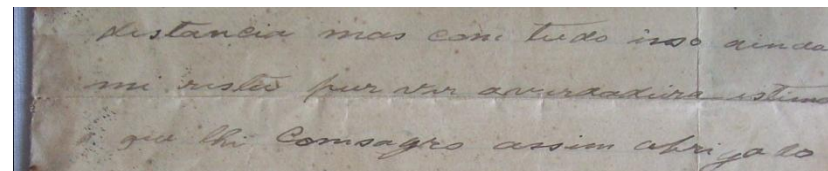 distancia mas com tudo isso ainda
mi resta por ver averdadeira estima
que lhi Comsagro assim abrigado